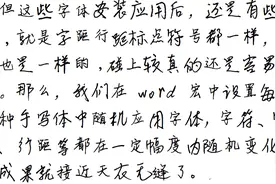 但这些字体安装应用后，还是有些
，就是字距行距标点符号都一样，
也是一样的，碰上较真的还是容易
。那么，我们在 word 宏中设置每
种手写体中随机应用字体，字符、
、行距等都在一定幅度内随机变化
成果就接近天衣无缝了。